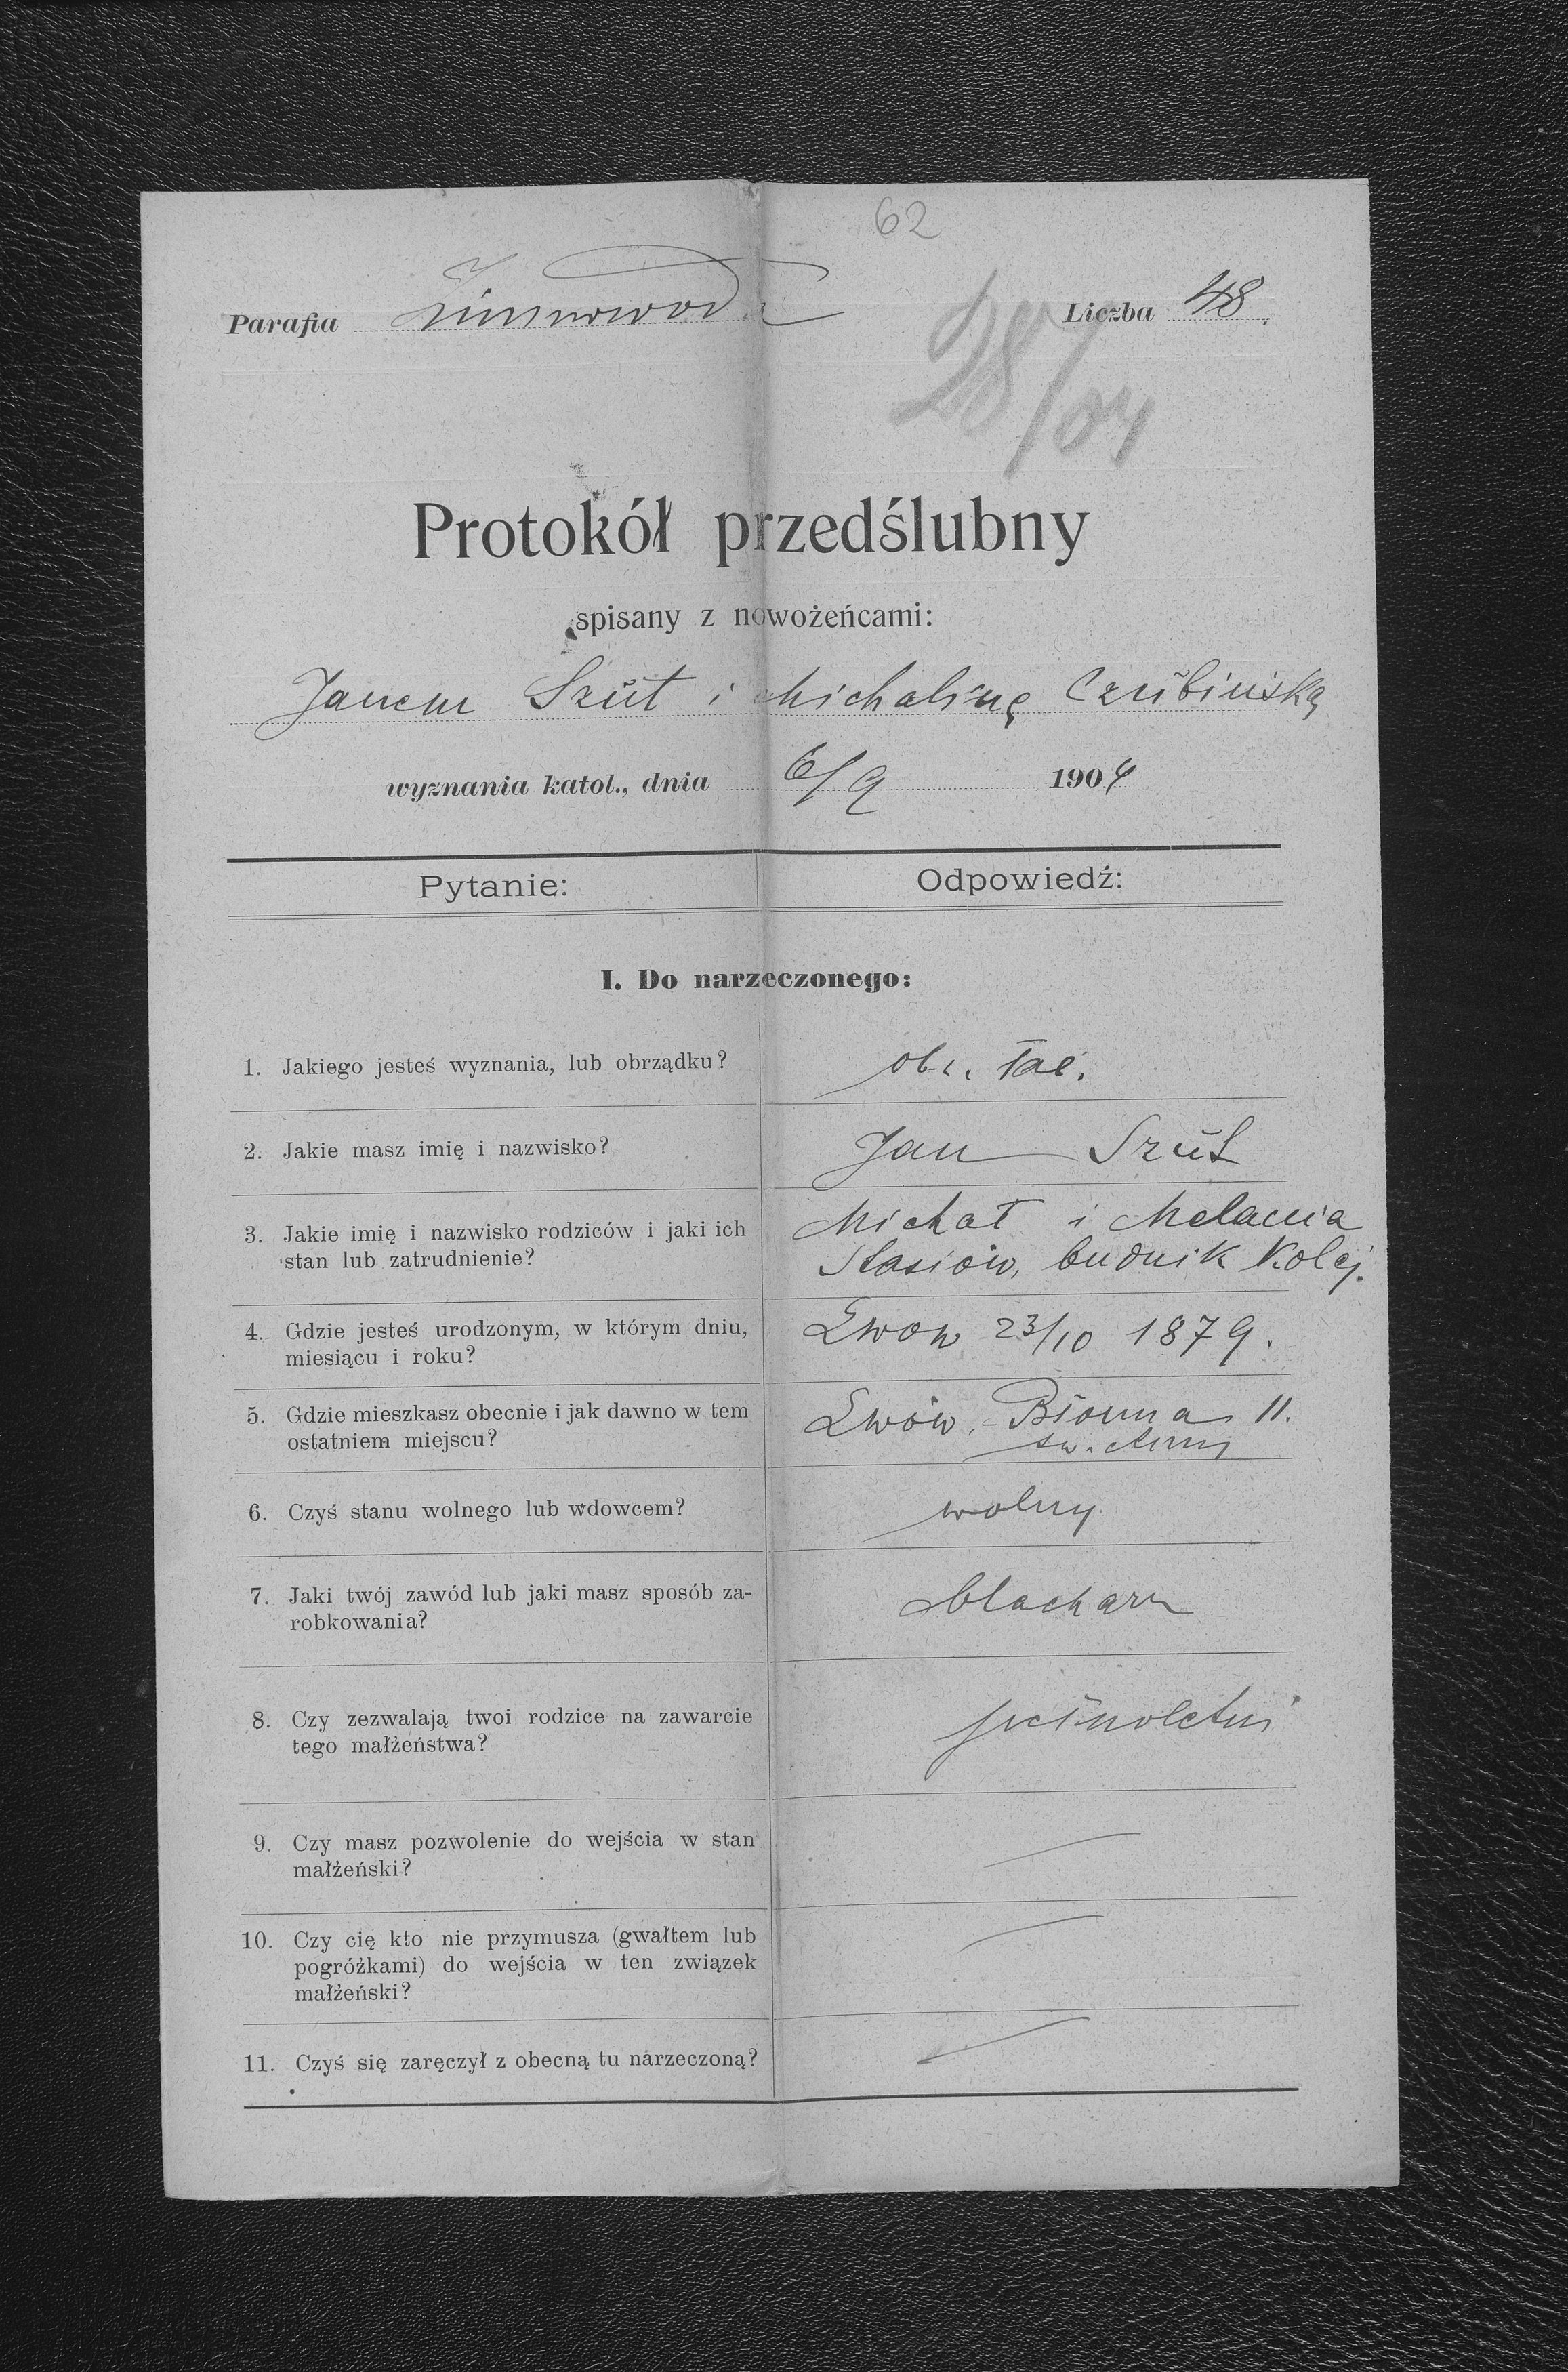 62
Parafia Zimnowoda Liczba 48.
28/04
Protokół przedślubny
spisany z nowożeńcami:
Janem Szut i Michaliną Czubińską
wyznania katol., dnia 6/9 1904
Pytanie: Odpowiedź:
I. Do narzeczonego:
1. Jakiego jesteś wyznania, lub obrządku? obr. łac.
2. Jakie masz imię i nazwisko? Jan Szut
3. Jakie imię i nazwisko rodziców i jaki ich Michał i Melania
stan lub zatrudnienie? Stasiów, budnik kolej.
4. Gdzie jesteś urodzonym, w którym dniu, Lwow 23/10 1879.
miesiącu i roku?
5. Gdzie mieszkasz obecnie i jak dawno w tem Lwów, 11.
ostatniem miejscu? św. Anny
6. Czyś stanu wolnego lub wdowcem? wolny
7. Jaki twój zawód lub jaki masz sposób za- blacharz
robkowania?
8. Czy zezwalają twoi rodzice na zawarcie pełnoletni
tego małżeństwa?
9. Czy masz pozwolenie do wejścia w stan
małżeński?
10. Czy cię kto nie przymusza (gwałtem lub
pogróżkami) do wejścia w ten związek
małżeński?
11. Czyś się zaręczył z obecną tu narzeczoną?